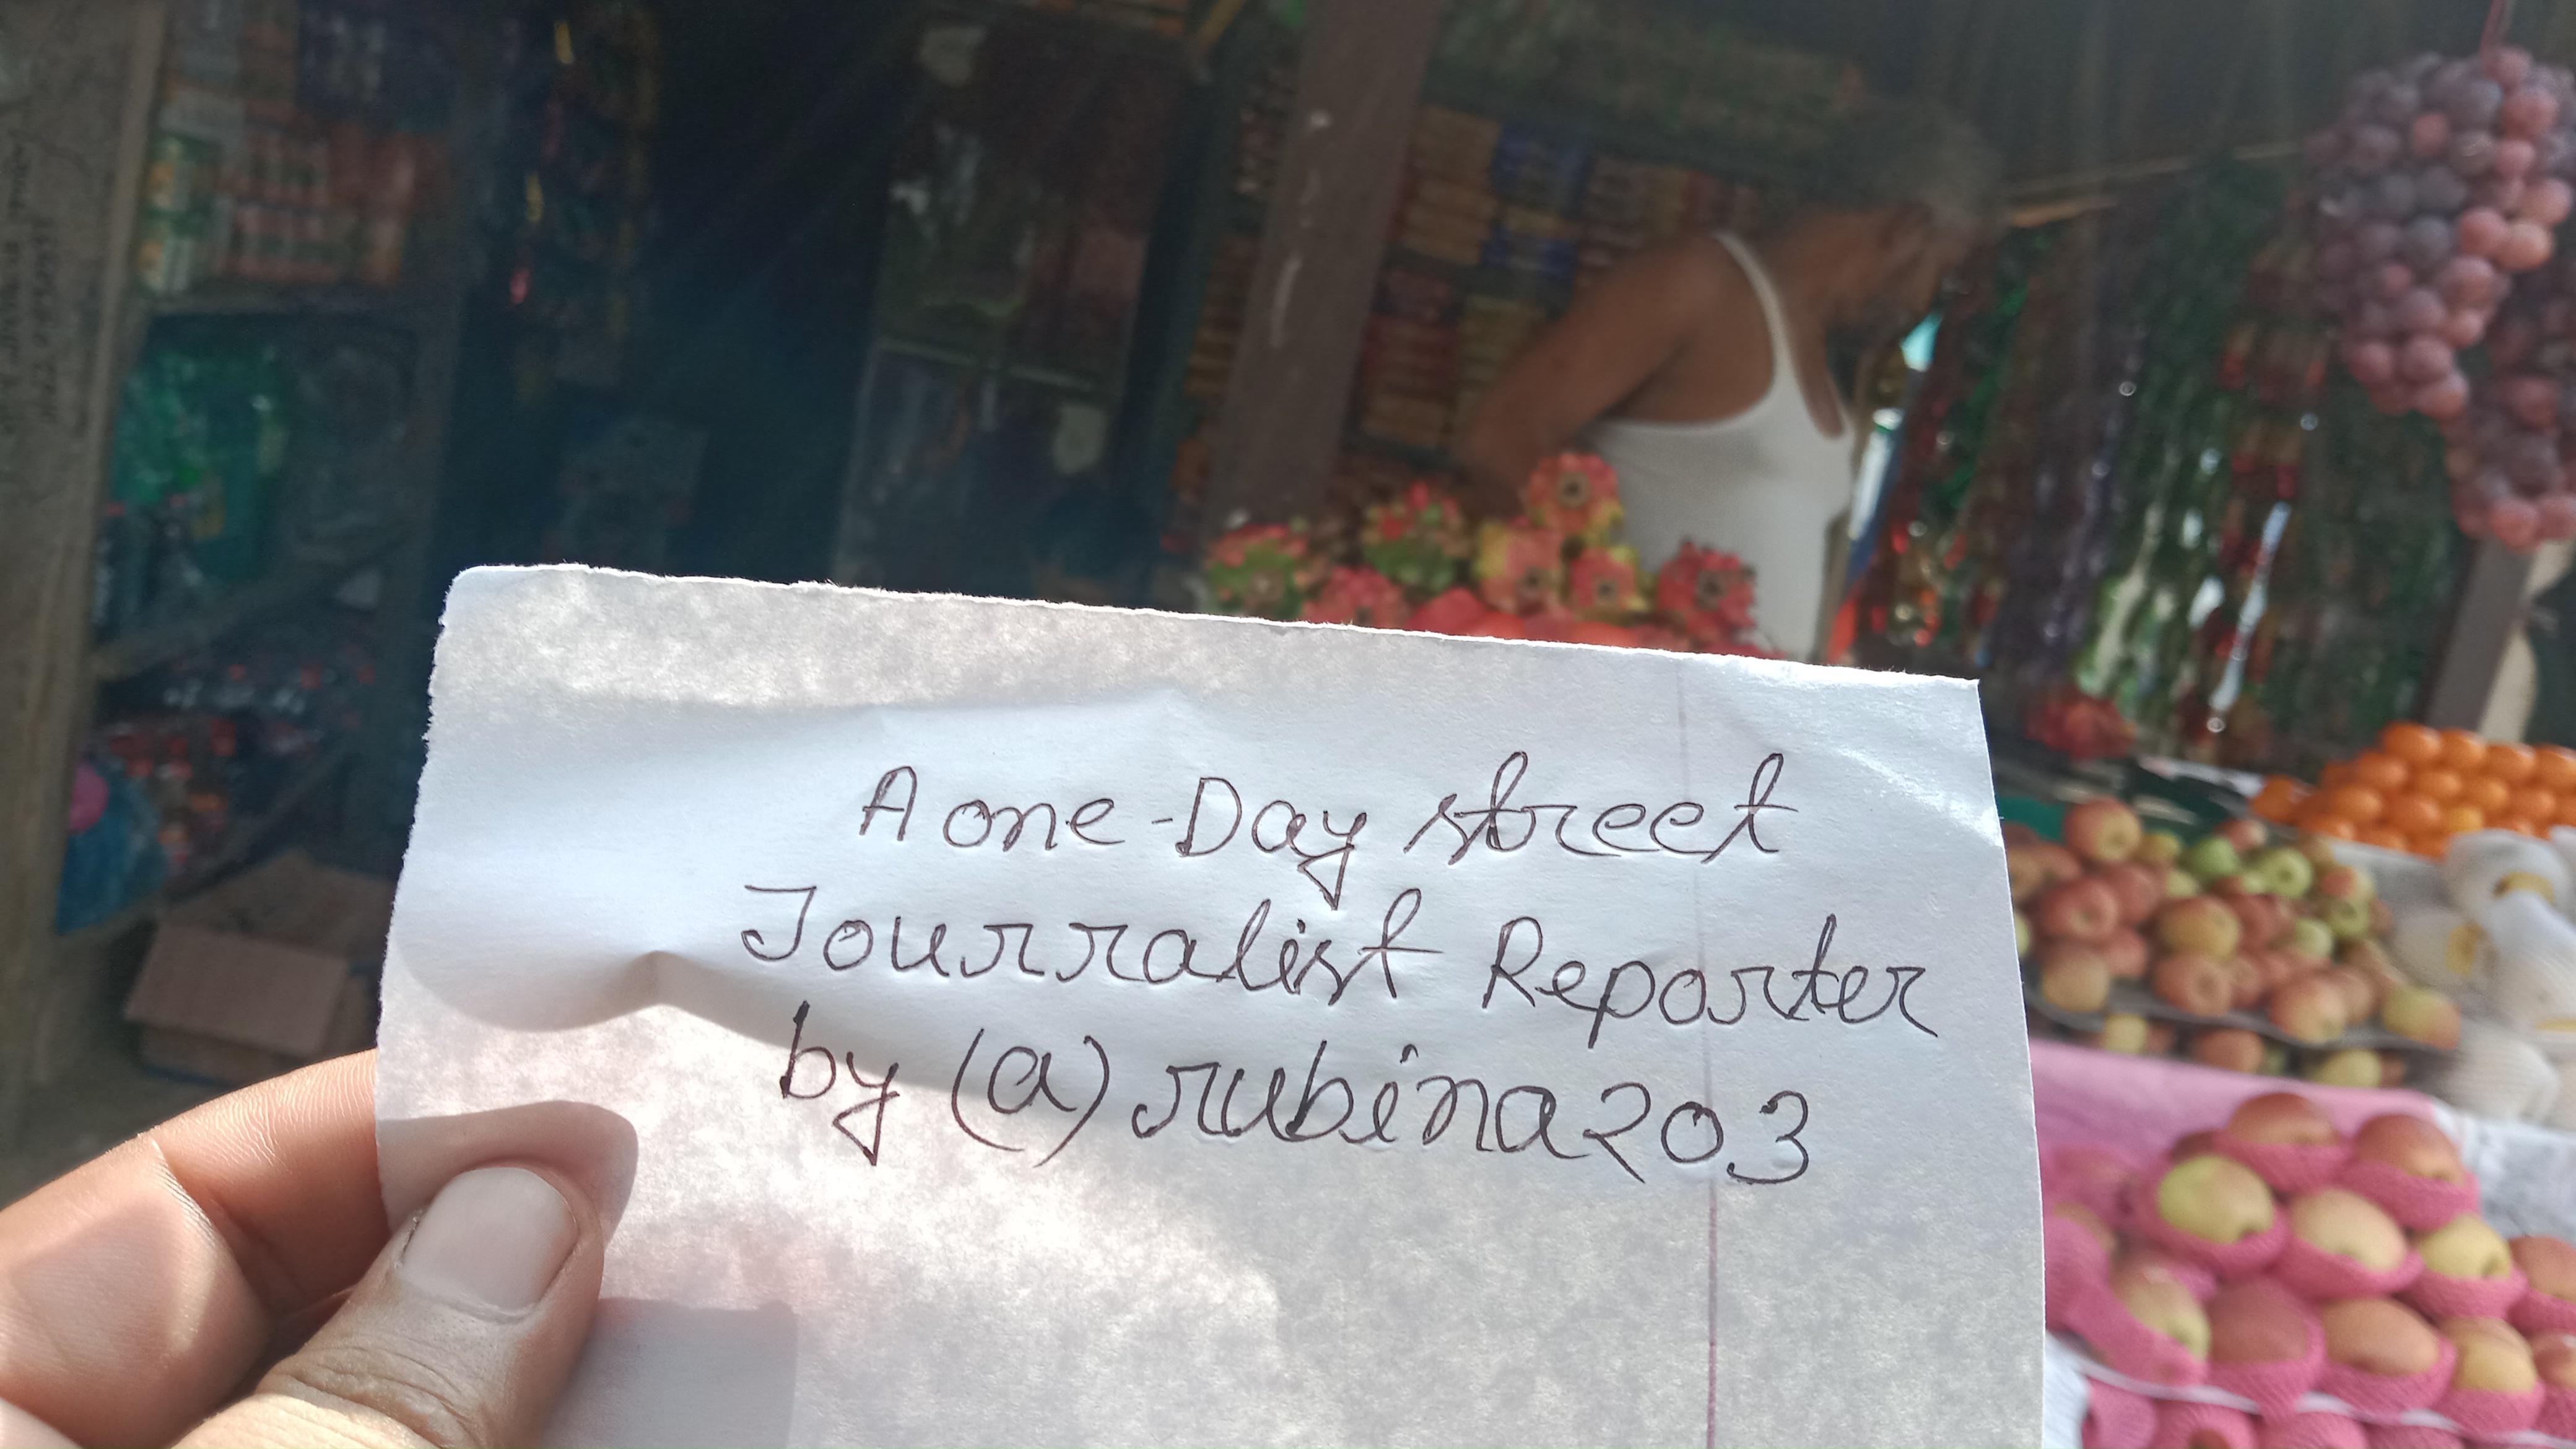 A one-Day street
Journalist Reporter
by (a) rubina203